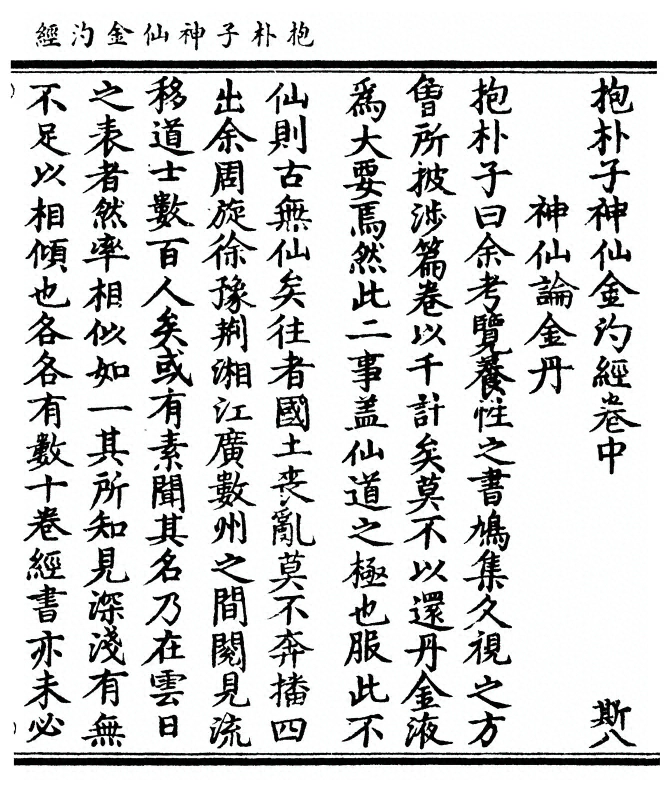 抱朴子神仙金汋經
抱朴子神仙金汋經卷中
斯八
神仙論金丹
抱朴子曰余考覽養性之書鳩集久視之方
曾所披涉篇卷以千計矣莫不以還丹金液
爲大要焉然此二事盖仙道之極也服此不
仙則古無仙矣往者國土丧亂莫不奔播四
出余周旋徐豫荆湘江廣數州之間閱見流
移道士數百人矣或有素聞其名乃在雲日
之表者然率相似如一其所知見深淺有無
不足以相傾也各各有數十卷經書亦未必